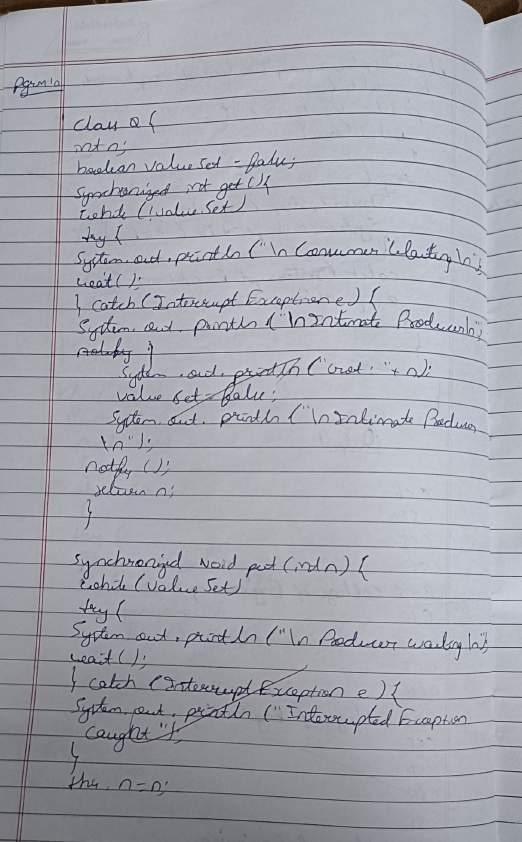 Pgrm:10
class Q {
int n;
boolean value Set = false;
Synchronized int get () {
while (!value.Set)
try {
System.out.println ("\n Consumer Waiting \n");
wait();
} catch (Interrupt Exception e) {
System.out.println ("\n Intimate Producer\n");
notify }
System.out.println ("Got: "+n);
value Set = false;
System.out.println ("\n Intimate Producer
\n");
notify ();
return n;
}
synchronized void put (int n) {
while (value Set)
try {
System.out.println ("\n Producer waiting \n");
wait();
} catch (Interrupt Exception e) {
System.out.println ("Interrupted Exception
caught");
}
this.n=n;